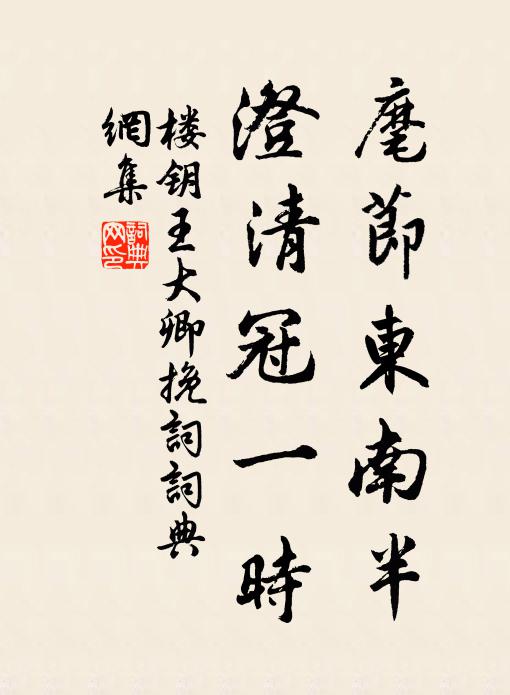 麾節東南半
澄清冠一時
楼钥王大卿挽詞詞典
網集
詞典
网印